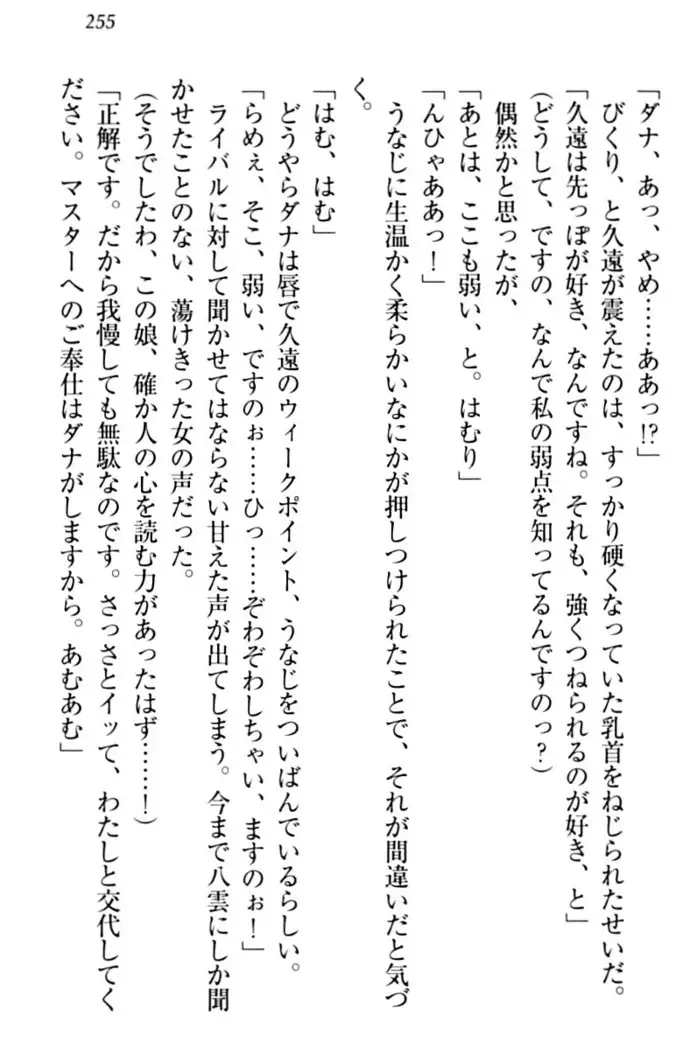 255
「ダナ、あっ、やめ……ああっ!?」
びくり、と久遠が震えたのは、すっかり硬くなっていた乳首をねじられたせいだ。
「久遠は先っぽが好き、なんですね。それも、強くつねられるのが好き、と」
(どうして、ですの、なんで私の弱点を知ってるんですのっ?)
偶然かと思ったが、
「あとは、ここも弱い、と。はむり」
「んひゃああっ!」
うなじに生温かく柔らかいなにかが押しつけられたことで、それが間違いだと気づ
く。
「はむ、はむ」
どうやらダナは唇で久遠のウィークポイント、うなじをついばんでいるらしい。
「らめぇ、そこ、弱い、ですのぉ……ひっ……ぞわぞわしちゃい、ますのぉ!」
ライバルに対して聞かせてはならない甘えた声が出てしまう。今まで八雲にしか聞
かせたことのない、蕩けきった女の声だった。
(そうでしたわ、この娘、確か人の心を読む力があったはず……!)
「正解です。だから我慢しても無駄なのです。さっさとイッて、わたしと交代してく
ださい。マスターへのご奉仕はダナがしますから。あむあむ」